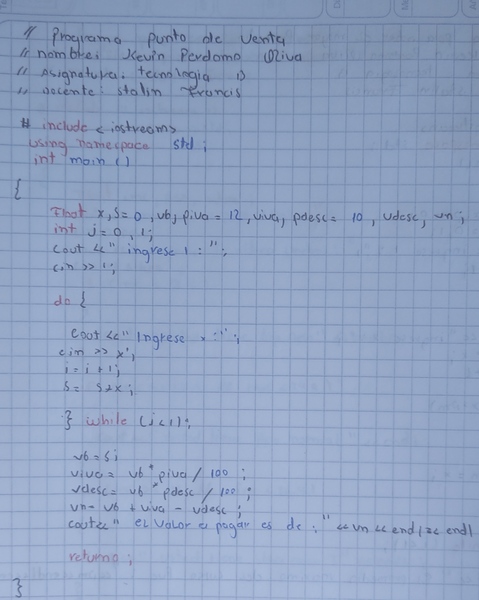 // Programa punto de venta
// nombre: Kevin Perdomo Oliva
// asignatura: tecnologia D
// docente: stalin Francis
# include < iostream>
using namespace std ;
int main ()
{
Float x, s=0, vb, piva = 12, viva, pdesc = 10, vdesc, vn;
int i=0, l;
cout <<" ingrese l : ";
cin >> l;
do {
cout <<" Ingrese x :" ;
cin >> x;
i = i +1;
s = s+x;
} while (i<l);
vb = s;
viva = vb * piva / 100 ;
vdesc = vb * pdesc / 100 ;
vn= vb + viva - vdesc ;
cout<<" el valor a pagar es de : " << vn << endl << endl
return 0 ;
}